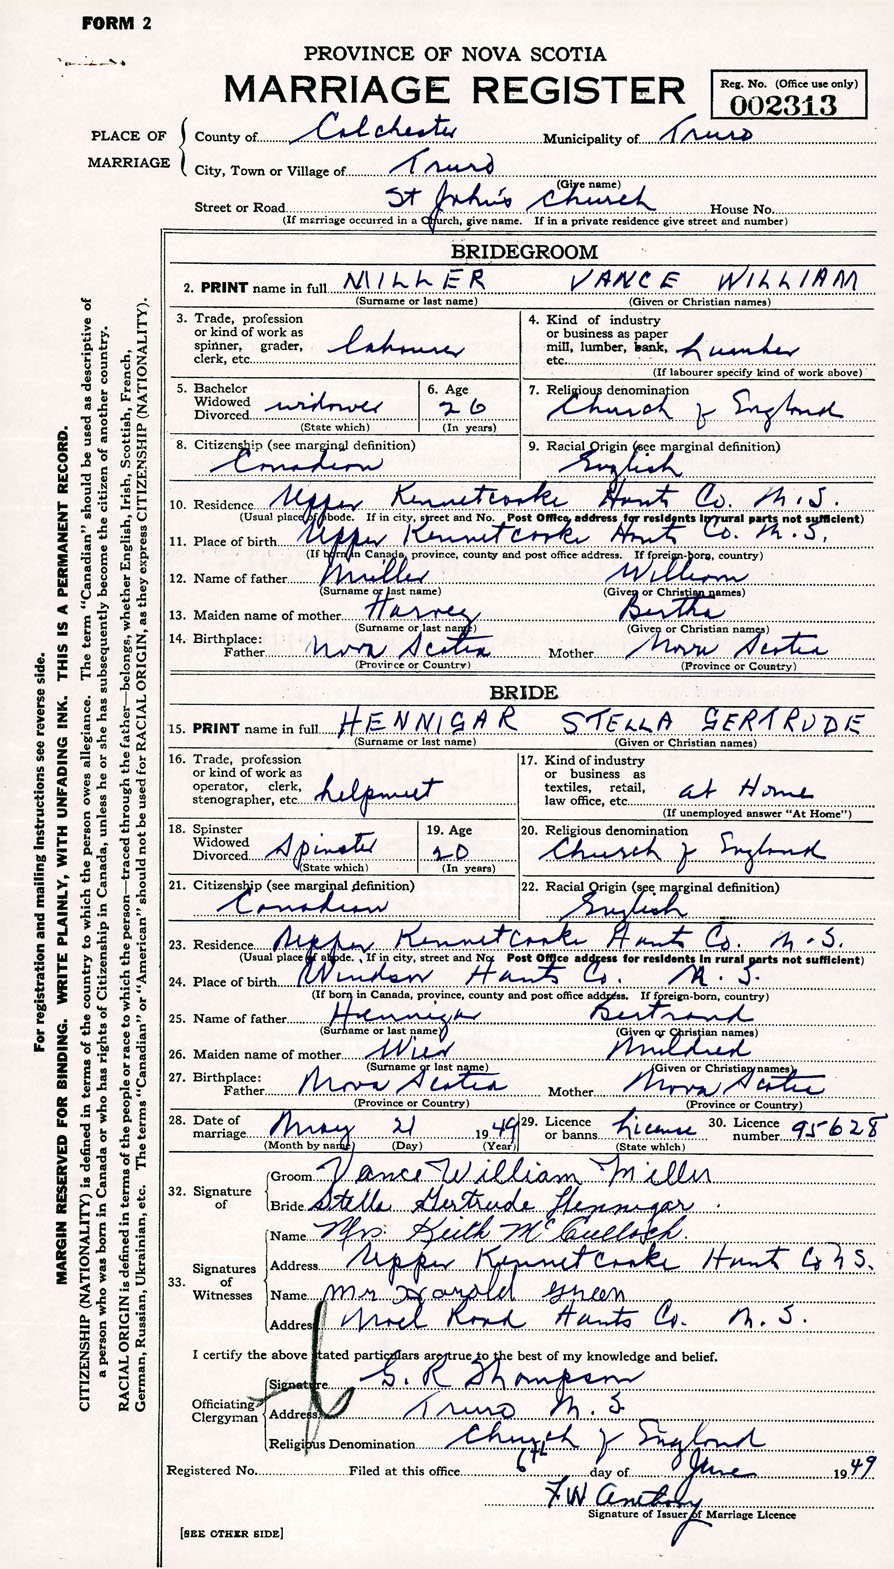 FORM 2
PROVINCE OF NOVA SCOTIA
MARRIAGE REGISTER
Reg. No. (Office use only)
002313
PLACE OF MARRIAGE
County of Colchester Municipality of Truro
City, Town or Village of Truro
(Give name)
Street or Road St John's Church House No.
(If marriage occurred in a Church, give name. If in a private residence give street and number)
BRIDEGROOM
2. PRINT name in full MILLER VANCE WILLIAM
(Surname or last name) (Given or Christian names)
3. Trade, profession or kind of work as spinner, grader, clerk, etc. labourer
4. Kind of industry or business as paper mill, lumber, bank, etc. Lumber
(If labourer specify kind of work above)
5. Bachelor Widowed Divorced widower
(State which)
6. Age 26
(In years)
7. Religious denomination Church of England
8. Citizenship (see marginal definition) Canadian
9. Racial Origin (see marginal definition) English
10. Residence Upper Kennetcooke Hants Co. N.S.
(Usual place of abode. If in city, street and No. Post Office address for residents in rural parts not sufficient)
11. Place of birth Upper Kennetcooke Hants Co. N.S.
(If born in Canada, province, county and post office address. If foreign-born, country)
12. Name of father Miller William
(Surname or last name) (Given or Christian names)
13. Maiden name of mother Harvey Bertha
(Surname or last name) (Given or Christian names)
14. Birthplace: Father Nova Scotia Mother Nova Scotia
(Province or Country) (Province or Country)
BRIDE
15. PRINT name in full HENNIGAR STELLA GERTRUDE
(Surname or last name) (Given or Christian names)
16. Trade, profession or kind of work as operator, clerk, stenographer, etc. helpmeet
17. Kind of industry or business as textiles, retail, law office, etc. at Home
(If unemployed answer "At Home")
18. Spinster Widowed Divorced Spinster
(State which)
19. Age 20
(In years)
20. Religious denomination Church of England
21. Citizenship (see marginal definition) Canadian
22. Racial Origin (see marginal definition) English
23. Residence Upper Kennetcooke Hants Co. N.S.
(Usual place of abode. If in city, street and No. Post Office address for residents in rural parts not sufficient)
24. Place of birth Windsor Hants Co. N.S.
(If born in Canada, province, county and post office address. If foreign-born, country)
25. Name of father Hennigar Bertrand
(Surname or last name) (Given or Christian names)
26. Maiden name of mother Wier Mildred
(Surname or last name) (Given or Christian names)
27. Birthplace: Father Nova Scotia Mother Nova Scotia
(Province or Country) (Province or Country)
28. Date of marriage May 21 1949
(Month by name) (Day) (Year)
29. Licence or banns License
(State which)
30. Licence number 95628
32. Signature of
Groom Vance William Miller
Bride Stella Gertrude Hennigar
33. Signatures of Witnesses
Name Mrs. Keith McCulloch
Address Upper Kennetcooke Hants Co N S.
Name Mr Harold Green
Address Noel Road Hants Co. N. S.
I certify the above stated particulars are true to the best of my knowledge and belief.
Officiating Clergyman
Signature G. R Thompson
Address Truro N. S.
Religious Denomination Church of England
Registered No. Filed at this office 6th day of June 1949
F W Anthony
Signature of Issuer of Marriage Licence
[SEE OTHER SIDE]
For registration and mailing instructions see reverse side.
MARGIN RESERVED FOR BINDING. WRITE PLAINLY, WITH UNFADING INK. THIS IS A PERMANENT RECORD.
CITIZENSHIP (NATIONALITY) is defined in terms of the country to which the person owes allegiance. The term "Canadian" should be used as descriptive of
a person who was born in Canada or who has rights of Citizenship in Canada, unless he or she has subsequently become the citizen of another country.
RACIAL ORIGIN is defined in terms of the people or race to which the person—traced through the father—belongs, whether English, Irish, Scottish, French,
German, Russian, Ukrainian, etc. The terms "Canadian" or "American" should not be used for RACIAL ORIGIN, as they express CITIZENSHIP (NATIONALITY).